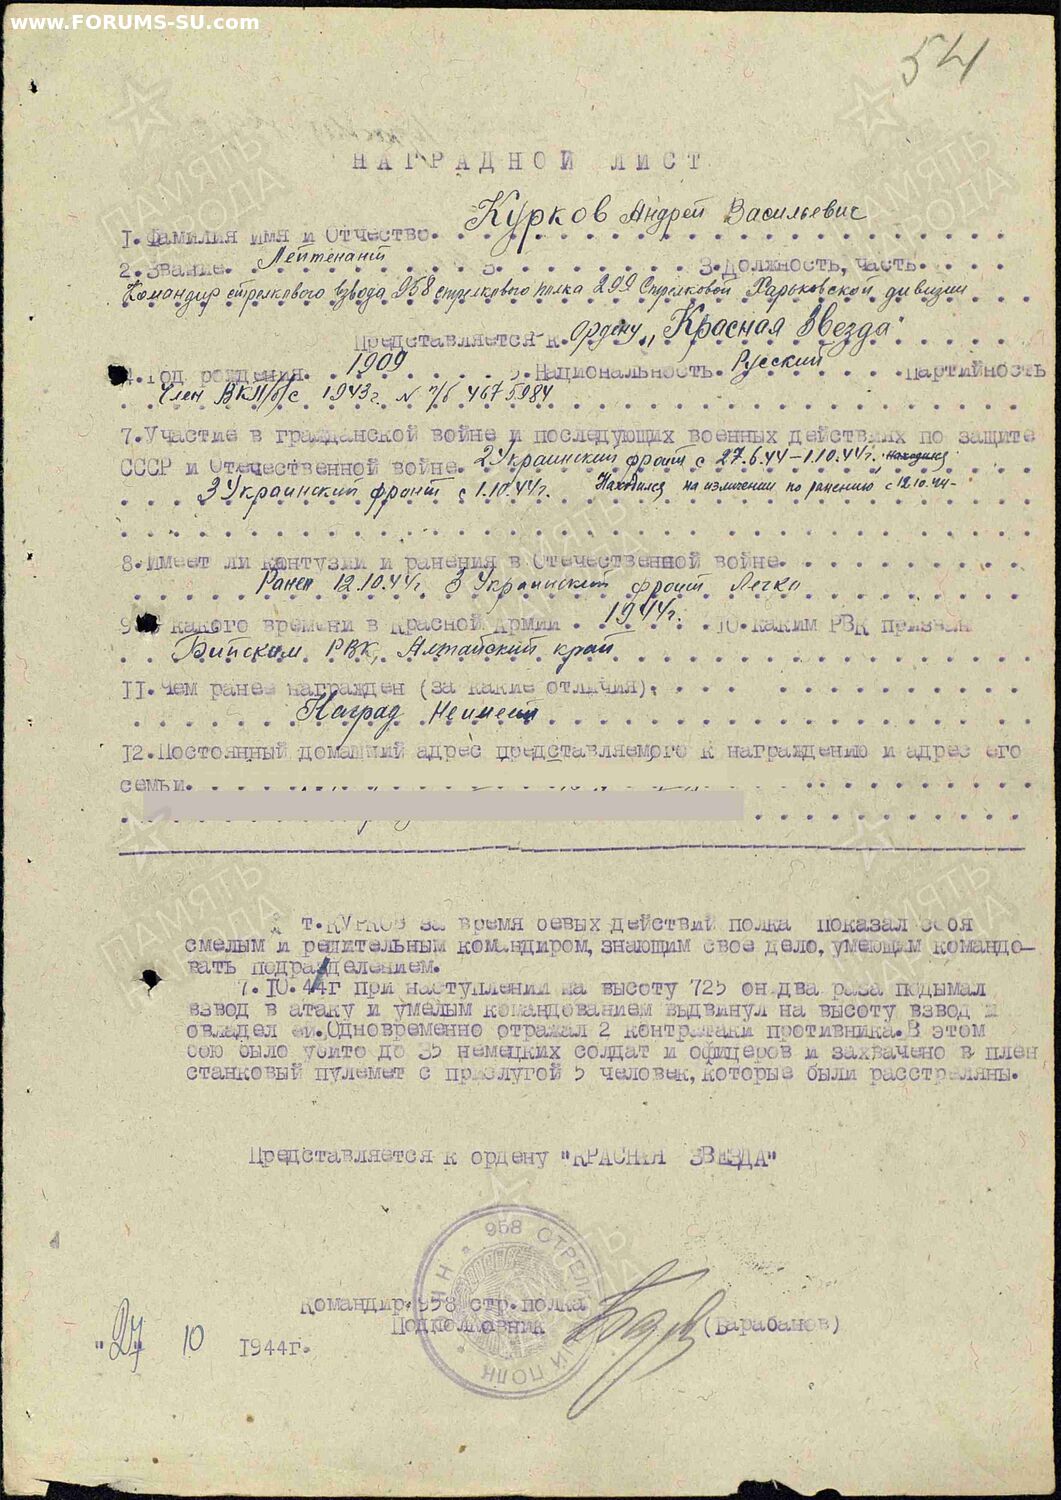 www.FORUMS-SU.com
54
НАГРАДНОЙ ЛИСТ
Курков Андрей Васильевич
1. Фамилия имя и Отчество.
2. Звание. Лейтенант 3. Должность, часть.
Командир стрелкового взвода 958 стрелкового полка 299 Стрелковой Харьковской дивизии
Представляется к. Ордену „Красная Звезда"
4. Год рождения. 1909 5. Национальность. Русский Партийность
Член ВКП/б/с 1943г. N п/б 4675984
7. Участие в гражданской войне и последующих военных действиях по защите
СССР и Отечественной войне. 2 Украинский фронт с 27.6.44-1.10.44г. находился
3 Украинский фронт с 1.10.44г. Находился на излечении по ранению с 12.10.44-
8. Имеет ли кантузии и ранения в Отечественной войне.
Ранен 12.10.44г. 3 Украинский фронт Легко
9. какого времени в Красной Армии 1944г. 10. каким РВК призван
Бийским РВК, Алтайский край
11. Чем ранее награжден (за какие отличия).
Наград Неимеет
12. Постоянный домашний адрес представляемого к награждению и адрес его
семьи.
т. КУРКОВ за время боевых действий полка показал себя
смелым и решительным командиром, знающим свое дело, умеющим командо-
вать подразделением.
7.10.44г при наступлении на высоту 725 он два раза подымал
взвод в атаку и умелым командованием выдвинул на высоту взвод и
овладел ей. Одновременно отражал 2 контратаки противника. В этом
бою было убито до 35 немецких солдат и офицеров и захвачено в плен
станковый пулемет с прислугой 5 человек, которые были расстреляны.
Представляется к ордену "КРАСНАЯ ЗВЕЗДА"
958 СТРЕЛКОВЫЙ ПОЛК
Командир 958 стр. полка
Подполковник (Барабанов)
"27" 10 1944г.
ПАМЯТЬ НАРОДА